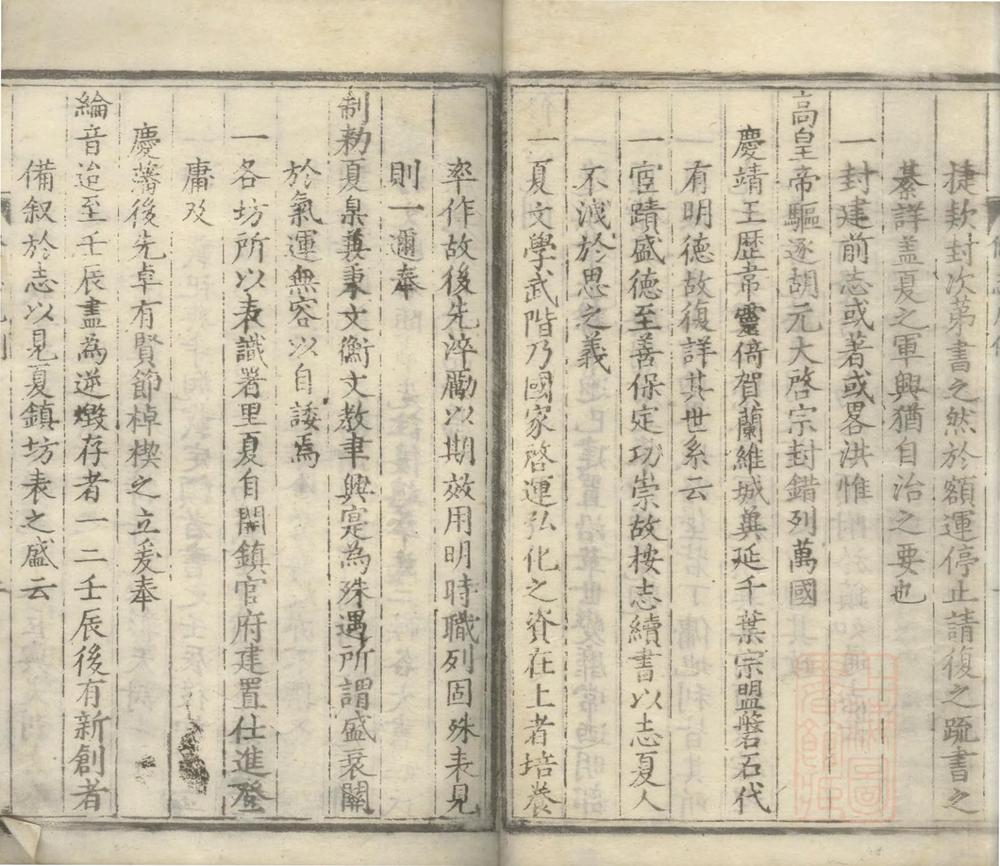 捷欵封次第書之然於額運停止請復之䟽書之
綦詳盖夏之軍興猶自治之要也
一封建前志或著或畧洪惟
高皇帝驅逐胡元大啓宗封錯列萬國
慶靖王歷帝靈倚賀蘭維城奠延千葉宗盟磐石代
有明德故復詳其世系云
一宦蹟盛德至善保定功崇故按志續書以志夏人
不渫於思之義
一夏文學武階乃國家啓運弘化之資在上者培養
率作故後先淬勵以期效用明時職列固殊表見
則一邇奉
制勑夏臬兼秉文衡文教聿興寔為殊遇所謂盛衰關
於氣運無容以自諉焉
一各坊所以表識著里夏自開鎮官府建置仕進登
庸及
慶藩後先卓有賢節棹楔之立爰奉
綸音迨至壬辰盡為逆燬存者一二壬辰後有新創者
備叙於志以見夏鎮坊表之盛云